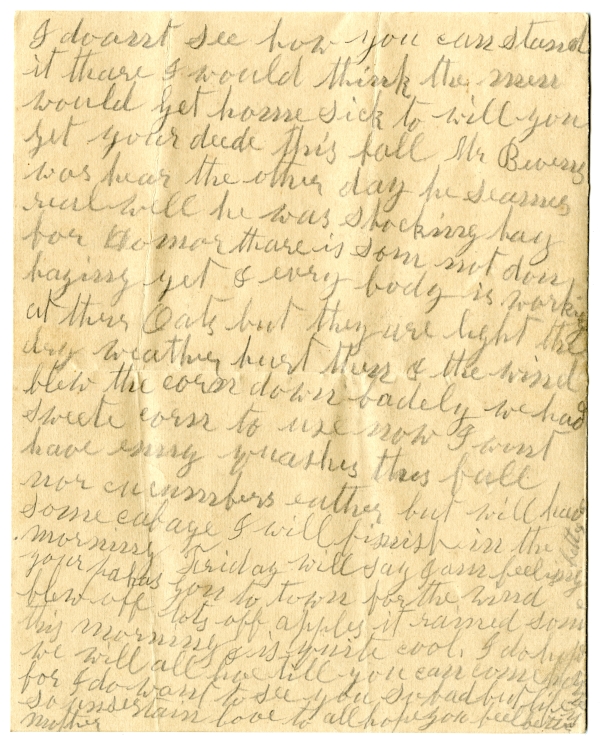 I doant see how you can stand
it thare I would think the men
would get home sick to will you
get your deede this fall Mr Bivens
was hear the other day he seames
real will he was stocking hay
for Homor thare is som not don
haying yet & evry body is working
at there Oats but they are light the
dry weather hurt them & the wind
blew the corn down badely we had
sweete corn to use now I wont
have enny quashes this fall
nor cucumbers euther but will have
some cabage I will finish in the
morning Friday will say I am feeling better
your pa has to town for the wind
blew off lots off apples it rained som
this morning & is quite cool. I do hope
we will all live till you can come home
for I do want to see you so bad but life is
so unsertain love to all hope you feel better
mother